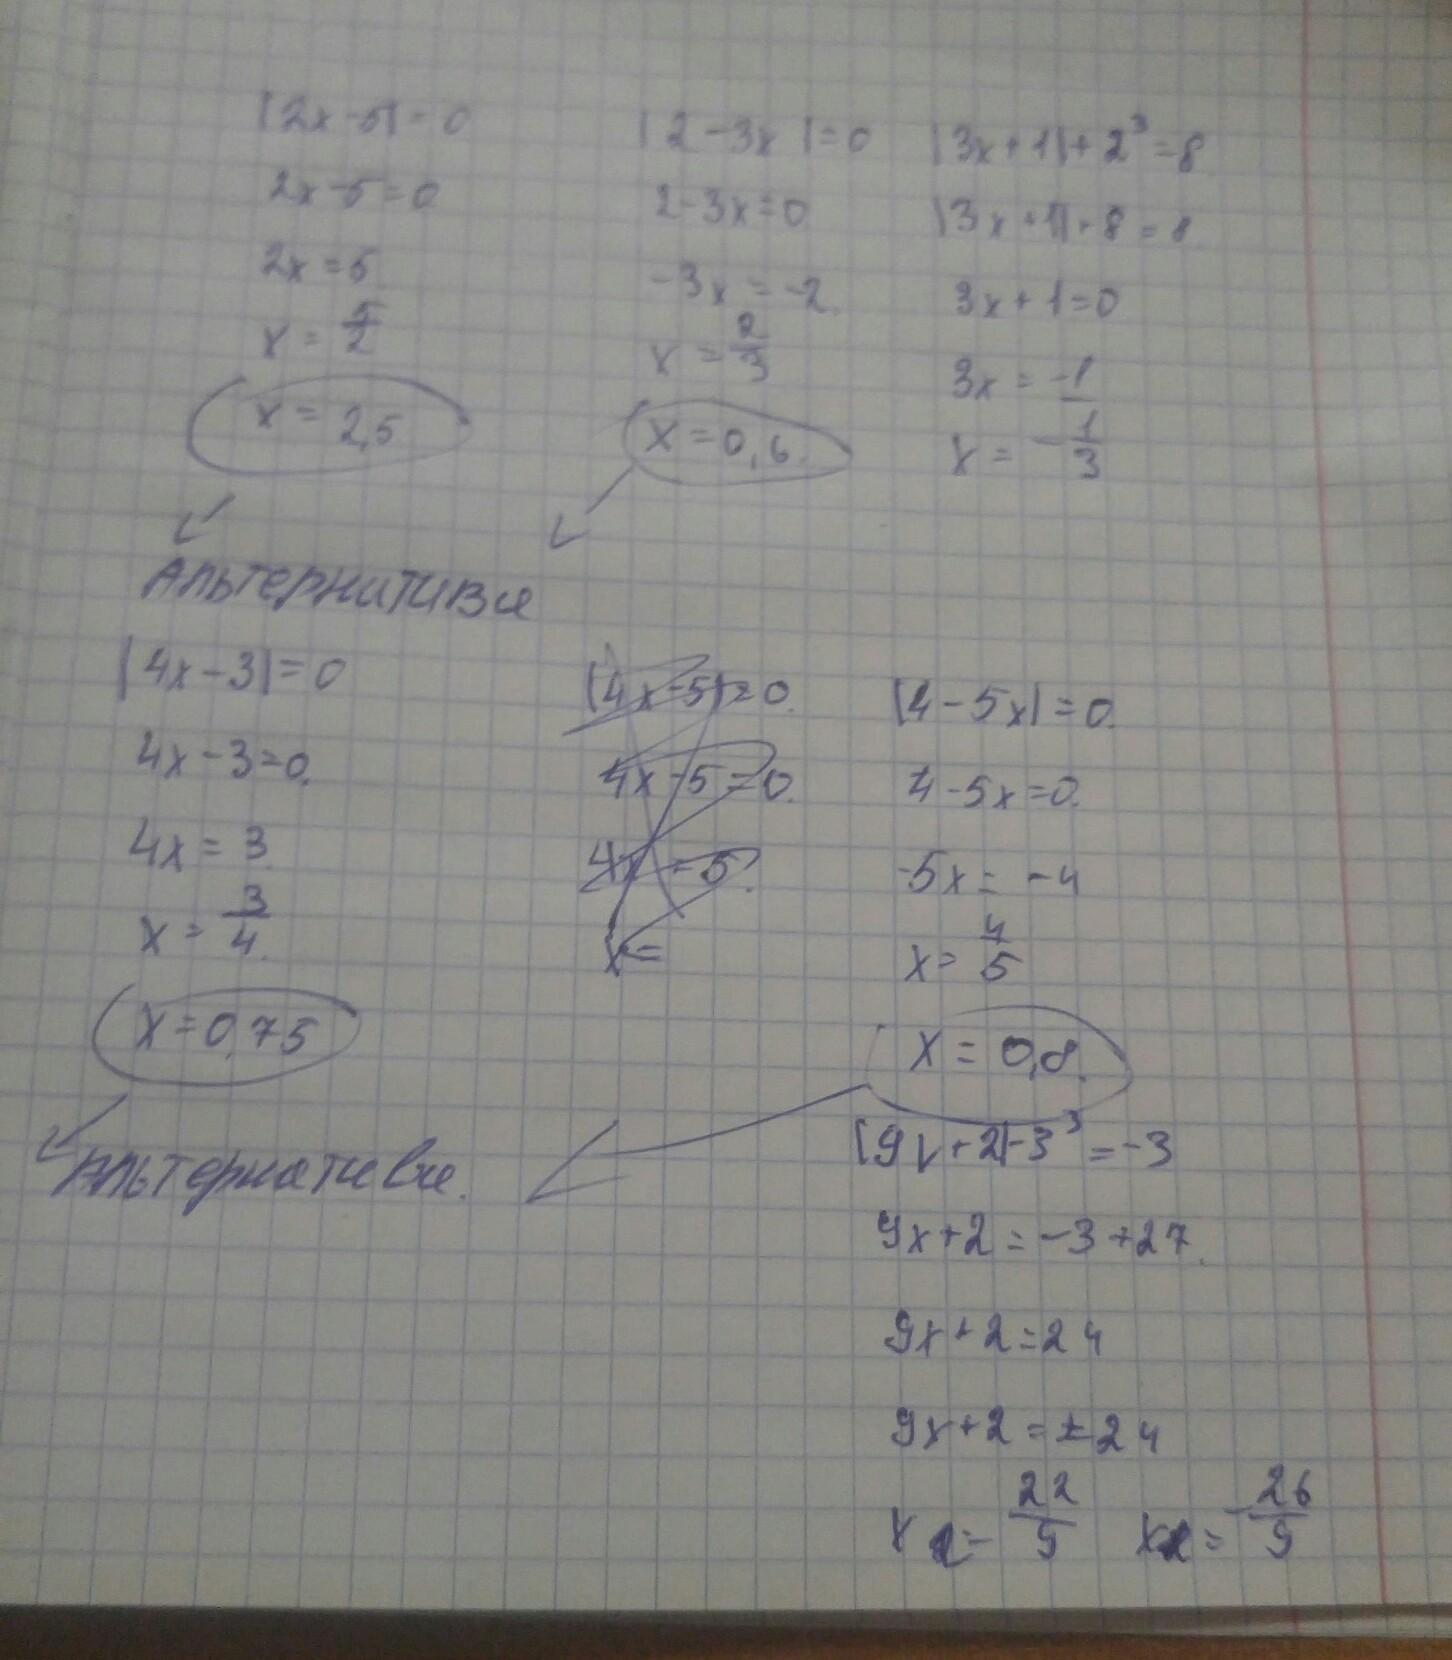 |2x-5|=0
2x-5=0
2x=5
x=5/2
x=2,5
|2-3x|=0
2-3x=0
-3x=-2.
x=2/3
x=0,6.
|3x+1|+2³=8
|3x+1|+8=8
3x+1=0
3x=-1
x=-1/3
Альтернативы
|4x-3|=0
4x-3=0.
4x=3.
x=3/4.
x=0,75
|4x-5|=0.
4x-5=0.
4x=5.
x=
|4-5x|=0.
4-5x=0.
-5x=-4
x=4/5
x=0,8.
Альтернативы.
|9x+2|-3³=-3
9x+2=-3+27.
9x+2=24
9x+2=±24
x=22/9 x=-26/9